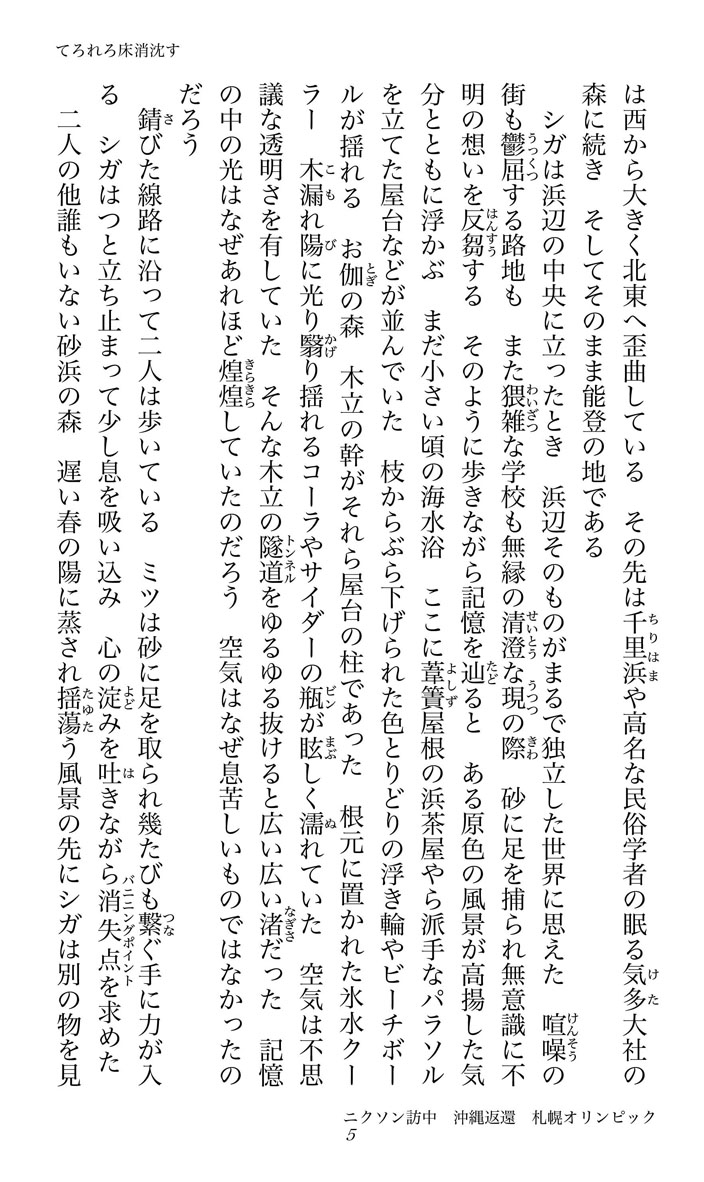 てろれろ床消沈す
は西から大きく北東へ歪曲している　その先は千里浜や高名な民俗学者の眠る気多大社の
森に続き　そしてそのまま能登の地である
　シガは浜辺の中央に立ったとき　浜辺そのものがまるで独立した世界に思えた　喧噪の
街も鬱屈する路地も　また猥雑な学校も無縁の清澄な現の際　砂に足を捕られ無意識に不
明の想いを反芻する　そのように歩きながら記憶を辿ると　ある原色の風景が高揚した気
分とともに浮かぶ　まだ小さい頃の海水浴　ここに葦簀屋根の浜茶屋やら派手なパラソル
を立てた屋台などが並んでいた　枝からぶら下げられた色とりどりの浮き輪やビーチボー
ルが揺れる　お伽の森　木立の幹がそれら屋台の柱であった　根元に置かれた氷水クー
ラー　木漏れ陽に光り翳り揺れるコーラやサイダーの瓶が眩しく濡れていた　空気は不思
議な透明さを有していた　そんな木立の隧道をゆるゆる抜けると広い広い渚だった　記憶
の中の光はなぜあれほど煌煌していたのだろう　空気はなぜ息苦しいものではなかったの
だろう
　錆びた線路に沿って二人は歩いている　ミツは砂に足を取られ幾たびも繋ぐ手に力が入
る　シガはつと立ち止まって少し息を吸い込み　心の淀みを吐きながら消失点を求めた
　二人の他誰もいない砂浜の森　遅い春の陽に蒸され揺蕩う風景の先にシガは別の物を見
ニクソン訪中　沖縄返還　札幌オリンピック
5